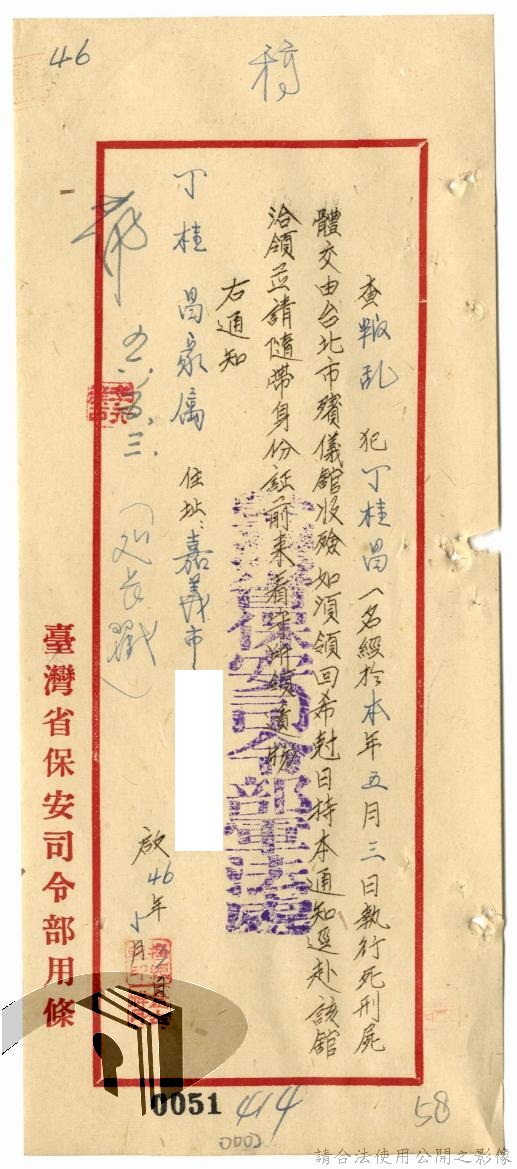 46
稿
查叛乱 犯丁桂昌一名經於本年五月三日執行死刑屍
體交由台北市殯儀舘收殮如須領回希尅日持本通知逕赴該舘
洽領並請隨帶身份証前来看守所領遺物
右通知
丁桂昌家属 住址：嘉義市
啟46年5月3日
臺灣省保安司令部軍法處
臺灣省保安司令部用條
0051
414
58
0002
請合法使用公開之影像